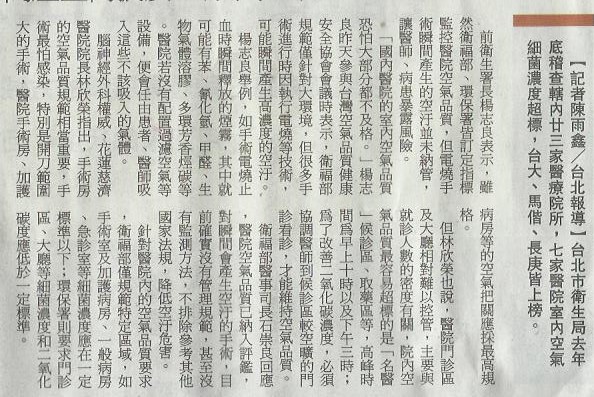 【記者陳雨鑫／台北報導】台北市衛生局去年
底稽查轄內廿三家醫療院所，七家醫院室內空氣
細菌濃度超標，台大、馬偕、長庚皆上榜。
前衛生署長楊志良表示，雖
然衛福部、環保署皆訂定指標
監控醫院空氣品質，但電燒手
術瞬間產生的空汙並未納管，
讓醫師、病患暴露風險。
「國內醫院的室內空氣品質
恐怕大部分都不及格。」楊志
良昨天參與台灣空氣品質健康
安全協會會議時表示，衛福部
規範僅針對大環境，但很多手
術進行時因執行電燒等技術，
可能瞬間產生高濃度的空汙。
楊志良舉例，如手術電燒止
血時瞬間釋放的煙霧，其中就
可能有苯、氰化氫、甲醛、生
物氣體溶膠、多環芳香烴碳等
。醫院若沒有配置過濾空氣等
設備，便會任由患者、醫師吸
入這些不該吸入的氣體。
腦神經外科權威、花蓮慈濟
醫院院長林欣榮指出，手術房
的空氣品質規範相當重要，手
術最怕感染，特別是開刀範圍
大的手術，醫院手術房、加護
病房等的空氣把關應採最高規
格。
但林欣榮也說，醫院門診區
及大廳相對難以控管，主要與
就診人數的密度有關，院內空
氣品質最容易超標的是「名醫
」候診區、取藥區等，高峰時
間為早上十時以及下午三時；
為了改善二氧化碳濃度，必須
協調醫師到候診區較空曠的門
診看診，才能維持空氣品質。
衛福部醫事司長石崇良回應
，醫院空氣品質已納入評鑑，
對瞬間會產生空汙的手術，目
前確實沒有管理規範，甚至沒
有監測方法，不排除參考其他
國家法規，降低空汙危害。
針對醫院內的空氣品質要求
，衛福部僅規範特定區域，如
手術室及加護病房、一般病房
、急診室等細菌濃度應在一定
標準以下；環保署則要求門診
區、大廳等細菌濃度和二氧化
碳度應低於一定標準。